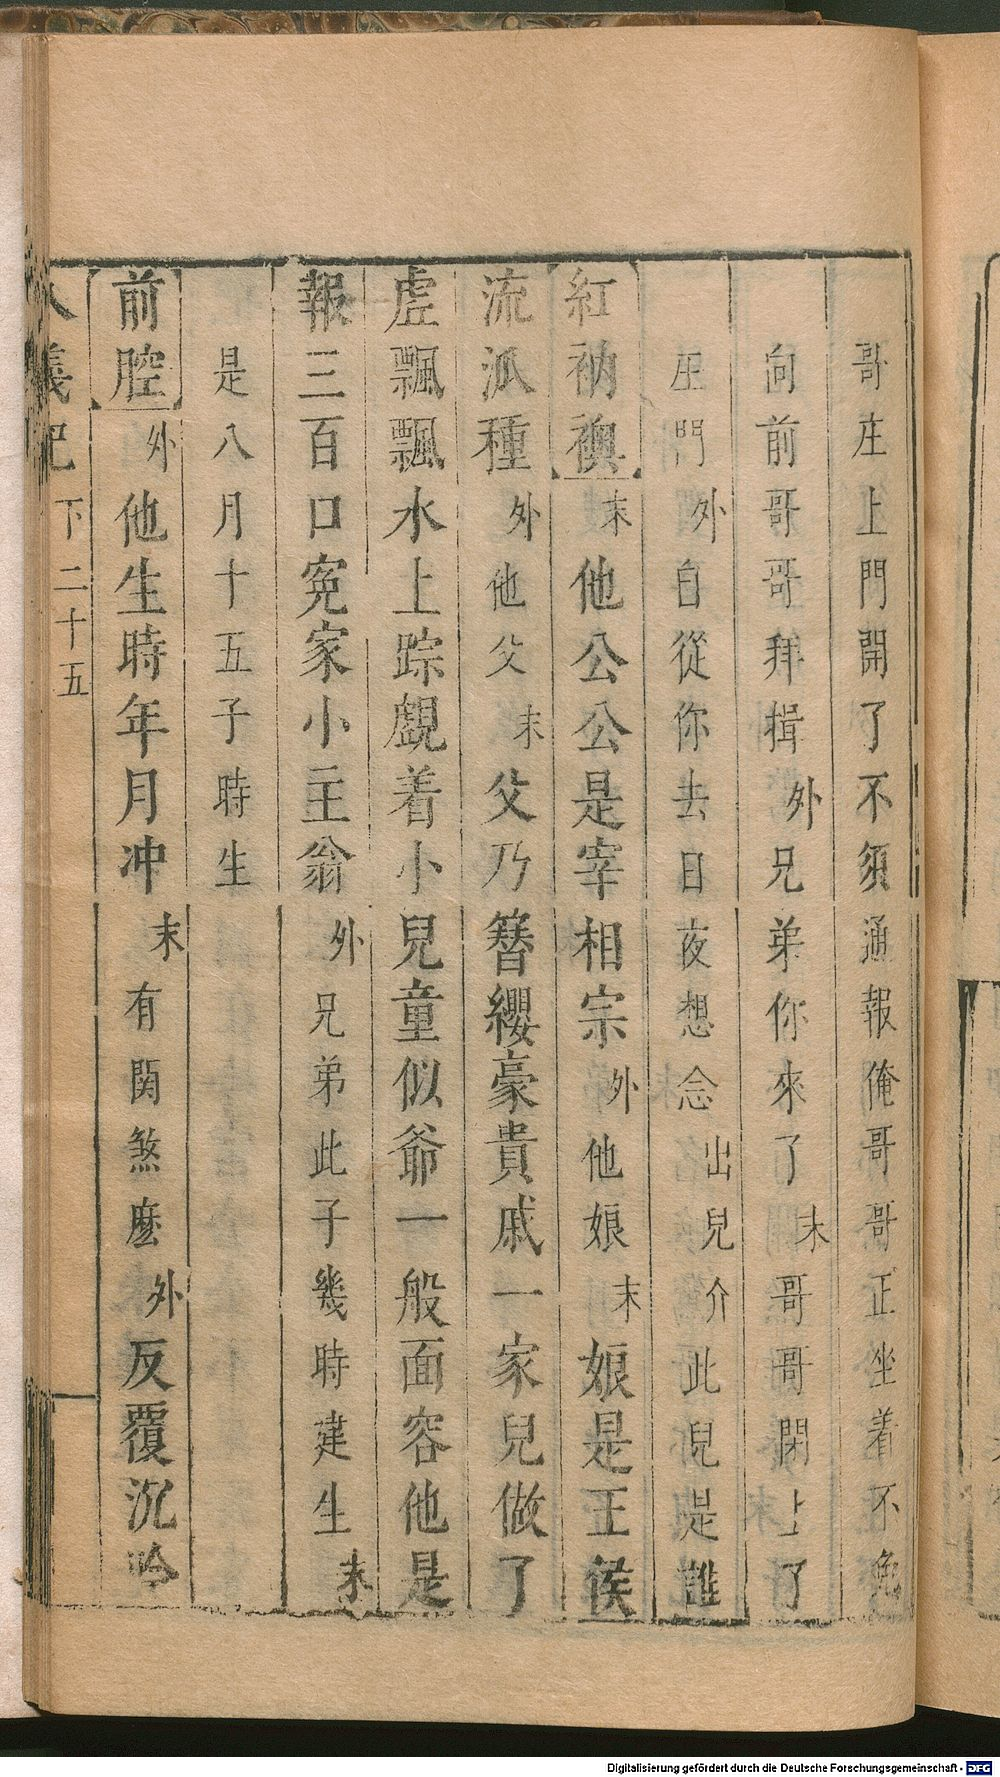 哥庄上門開了不須通報俺哥哥正坐着不免
向前哥哥拜揖外兄弟你來了末哥哥閉上了
庄門外自從你去日夜想念出兒介此兒是誰
紅衲襖末他公公是宰相宗外他娘末娘是王侯
流派種外他父末父乃簪纓豪貴戚一家兒做了
虛飄飄水上踪覷着小兒童似爺一般面容他是
報三百口冤家小主翁外兄弟此子幾時建生末
是八月十五子時生
前腔外他生時年月冲末有関煞麽外反覆沉吟
八義記 下 二十五
Digitalisierung gefördert durch die Deutsche Forschungsgemeinschaft - DFG